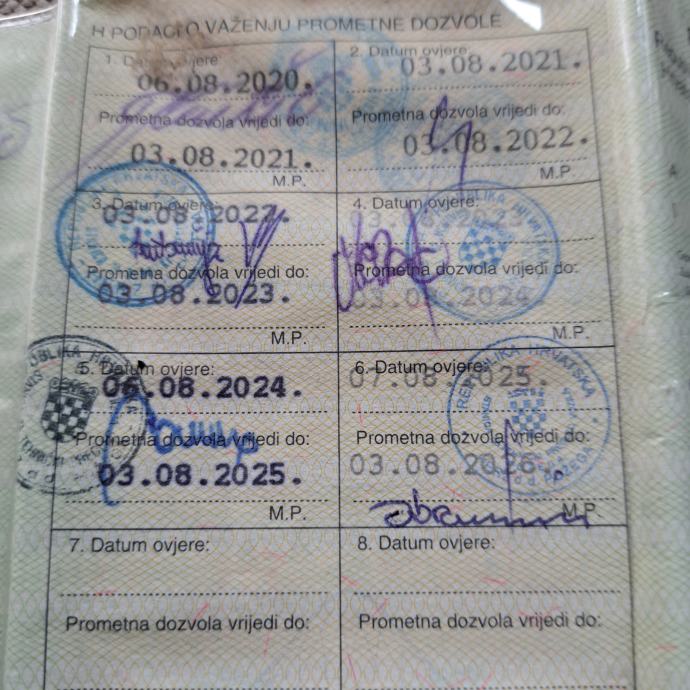 H PODACI O VAŽENJU PROMETNE DOZVOLE
1. Datum ovjere
06.08.2020.
Prometna dozvola vrijedi do:
03.08.2021.
M.P.
2. Datum ovjere
03.08.2021.
Prometna dozvola vrijedi do:
03.08.2022.
M.P.
3. Datum ovjere:
03.08 2022.
Prometna dozvola vrijedi do:
03.08.2023.
M.P.
4. Datum ovjere:
03.08.2023.
Prometna dozvola vrijedi do:
03.08.2024.
M.P.
5. Datum ovjere:
06.08.2024.
Prometna dozvola vrijedi do:
03.08.2025.
M.P.
6. Datum ovjere:
07.08.2025.
Prometna dozvola vrijedi do:
03.08.2026.
M.P.
REPUBLIKA HRVATSKA
POŽEGA
7. Datum ovjere:
Prometna dozvola vrijedi do:
8. Datum ovjere:
Prometna dozvola vrijedi do: